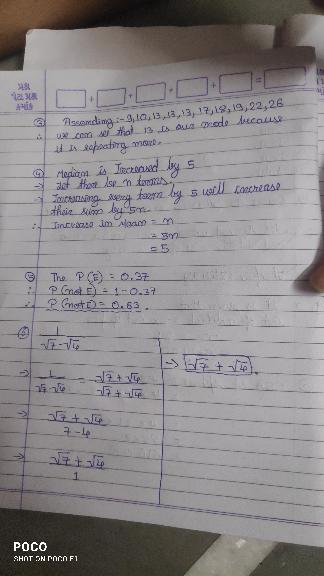 પ્રશ્ન
પેટા પ્રશ્ન
ક્રમાંક
+ + + + + =
③ Assending :- 9,10,13,13,13,17,18,19,22,26
∴ we can see that 13 is our mode because
it is repeating more.
④ Median is Increased by 5
→ Let there be n terms
→ Increasing every term by 5 will increase
their sum by 5n.
∴ Increase in
= 5
⑤ The P(E) = 0.37
∴ P(not E) = 1-0.37
∴ P(not E) = 0.63.
⑥ 1
√7-√6
→ 1 = √7+√6
√7-√6 √7+√6
→ √7+√6
7-6
→ √7+√6
1
→ √7 + √6.
POCO
SHOT ON POCO F1